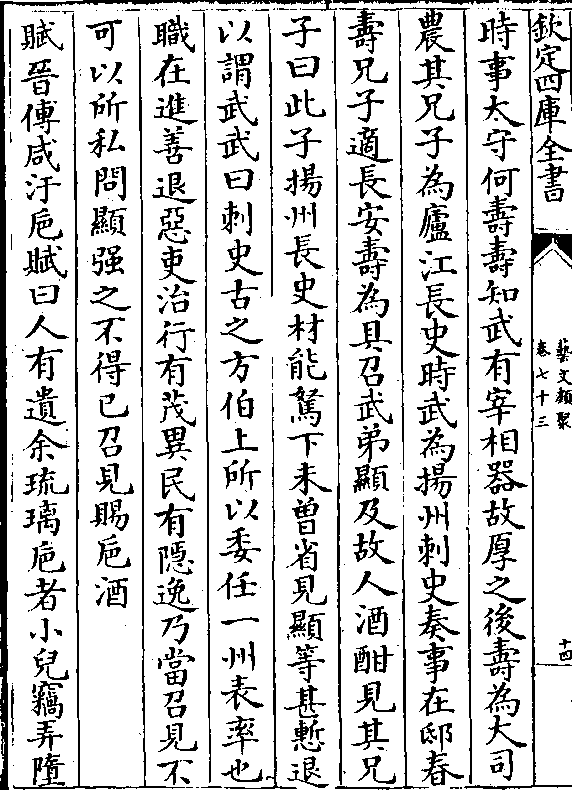 欽定四庫全書
藝文類聚
卷七十三
十四
時事太守何壽壽知武有宰相器故厚之後壽為大司
農其兄子為廬江長史時武為揚州刺史奏事在邸春
壽兄子適長安壽為具召武弟顯及故人酒酣見其兄
子曰此子揚州長史材能駑下未曾省見顯等甚慙退
以謂武武曰刺史古之方伯上所以委任一州表率也
職在進善退惡吏治行有茂異民有隱逸乃當召見不
可以所私問顯强之不得已召見賜巵酒
賦晉傅咸汙巵賦曰人有遺余琉璃巵者小兒竊弄墮